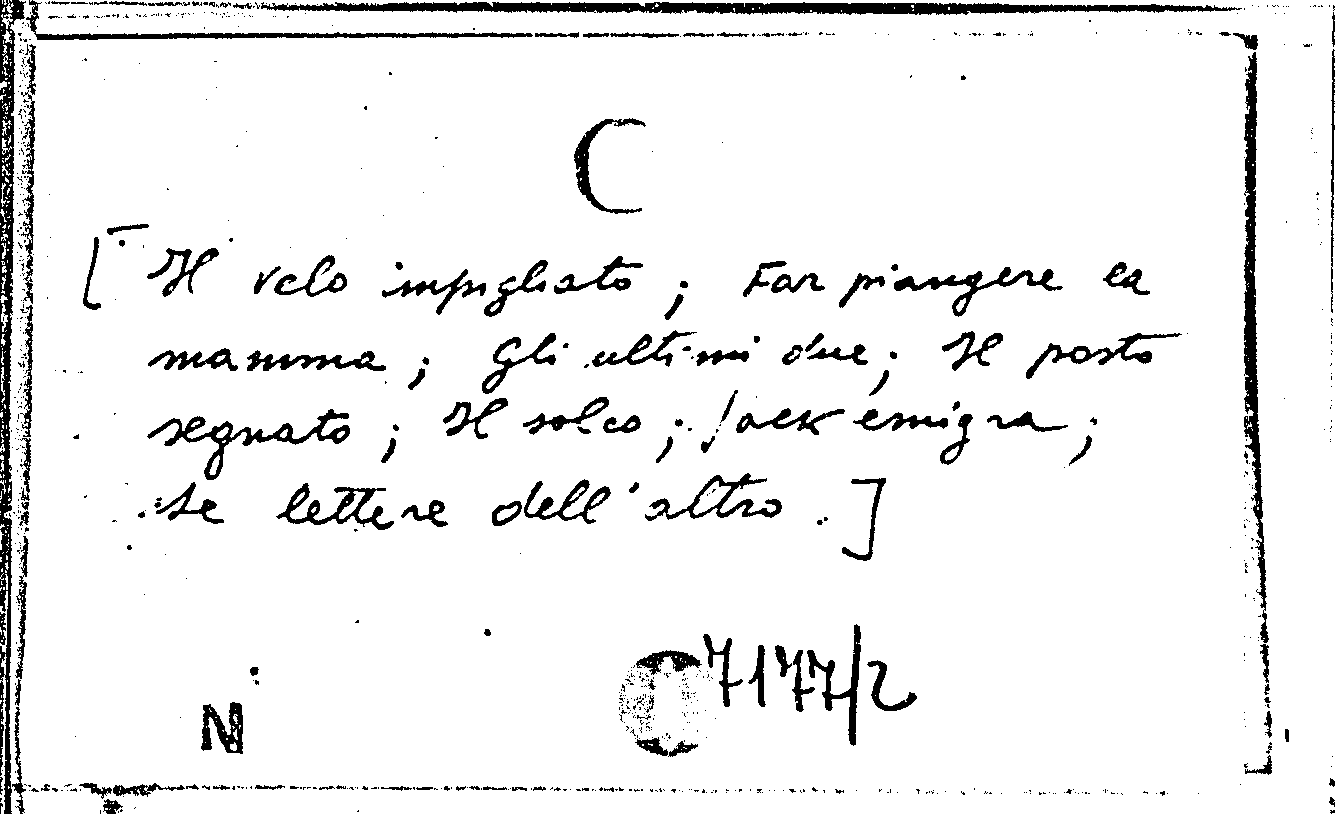 C
[Il velo impigliato; Far piangere la
mamma; Gli ultimi due; Il posto
segnato; Il solco; Jack emigra;
Le lettere dell'altro.]
7177/2
N